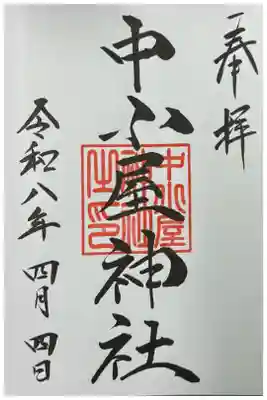 奉拝
中小屋神社
令和八年 四月 四日
中小屋神社之印